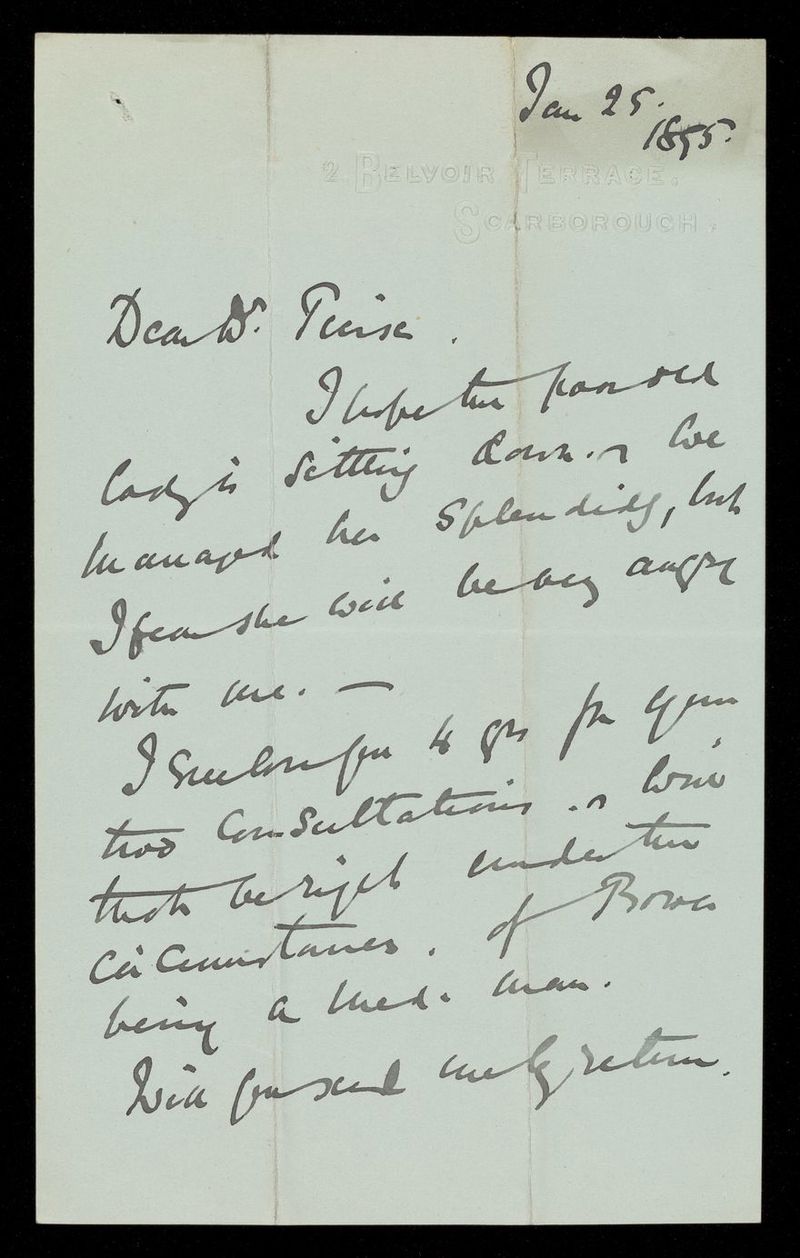 Jan 25.
1895.
2. BELVOIR TERRACE.
SCARBOROUGH.
Dear Dr.
I hope the poor old
lady is settling down. We
managed her splendidly, but
I fear she will be very angry
with me. —
I enclose you 4 gs for your
two Consultations. Will
that be right under the
circumstances. of
being a Med. man.
Will you send me by return.